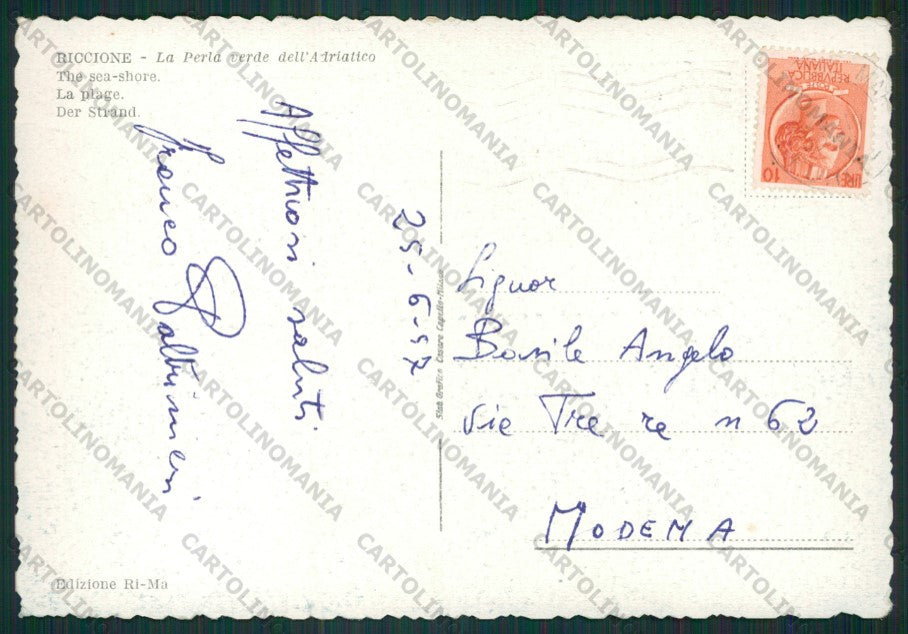 RICCIONE - La Perla verde dell'Adriatico
The sea-shore.
La plage.
Der Strand.
Affettuosi saluti.
Franco
25-6-57
Stab. Grafico Cesare Capello-Milano
REPVBBLICA
ITALIANA
POSTE
LIRE 10
Signor
Basile Angelo
vie Tre re n 62
MODENA
Edizione Ri-Ma
CARTOLINOMANIA